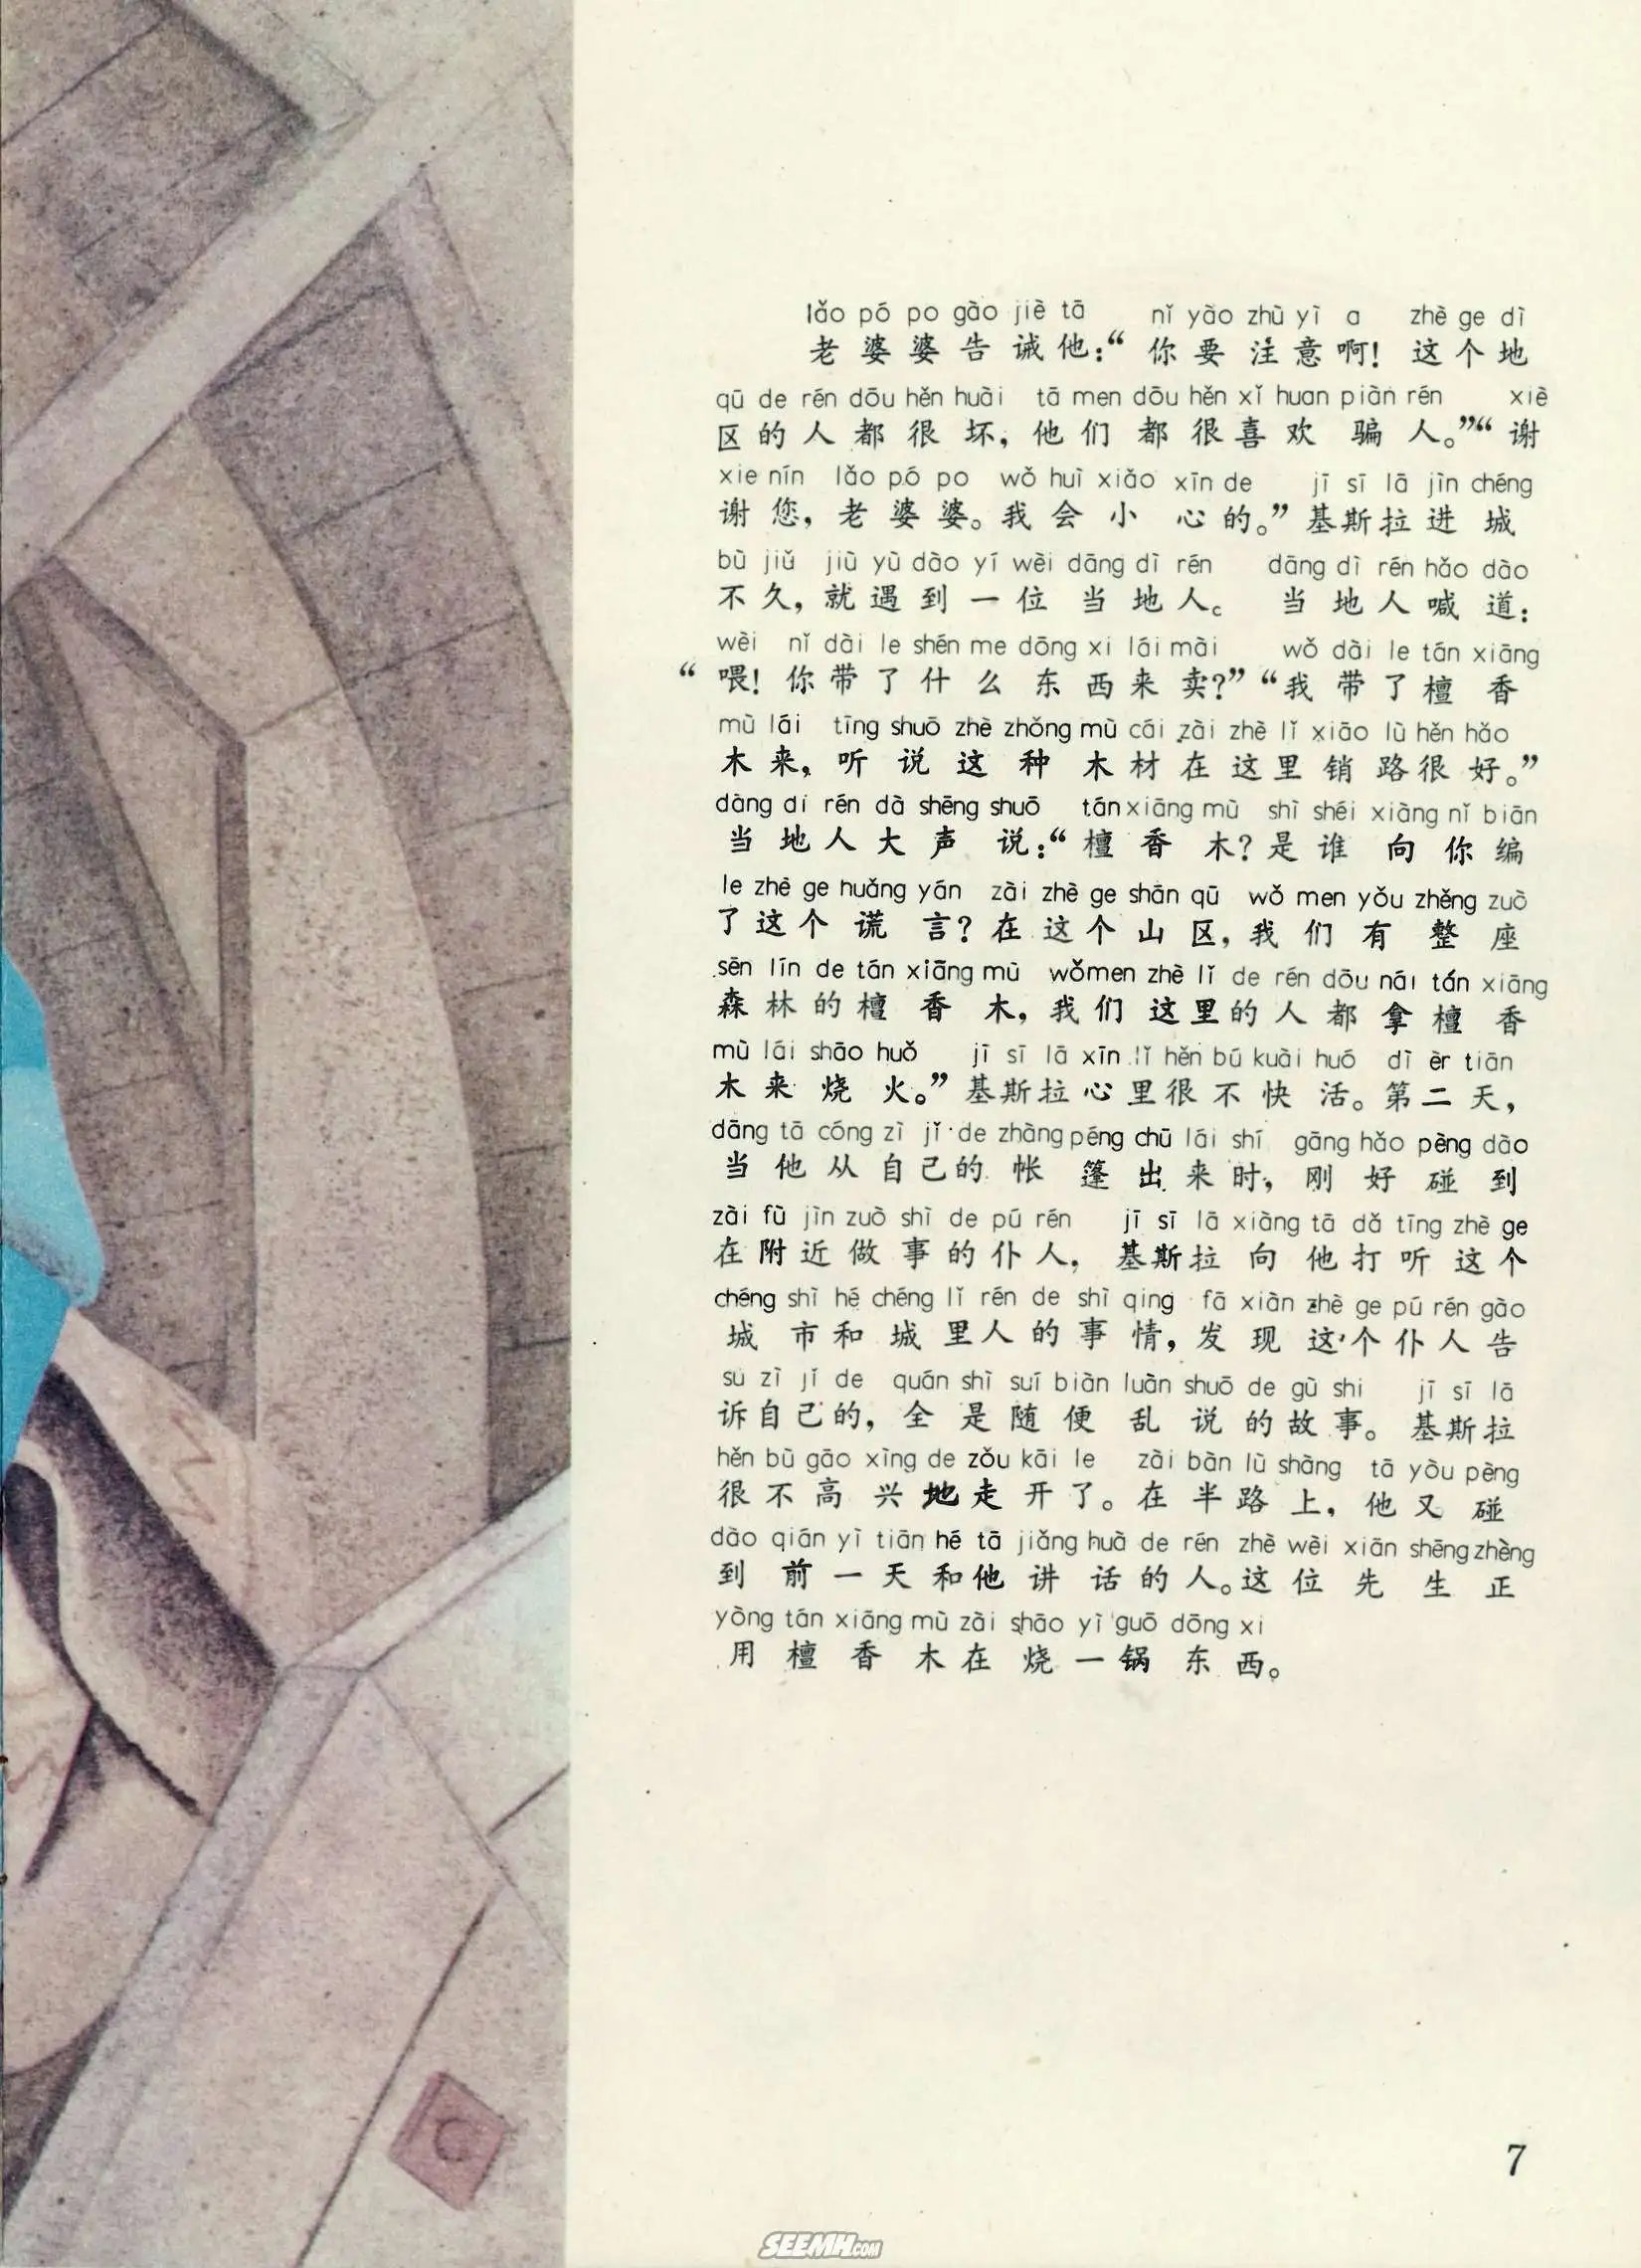 lǎo pó po gào jiè tā nǐ yào zhù yì a zhè ge dì
老婆婆告诫他：“你要注意啊！这个地
qū de rén dōu hěn huài tā men dōu hěn xǐ huan piàn rén xiè
区的人都很坏，他们都很喜欢骗人。”“谢
xie nín lǎo pó po wǒ huì xiǎo xīn de jī sī lā jìn chéng
谢您，老婆婆。我会小心的。”基斯拉进城
bù jiǔ jiù yù dào yí wèi dāng dì rén dāng dì rén hǎo dào
不久，就遇到一位当地人。当地人喊道：
wèi nǐ dài le shén me dōng xi lái mài wǒ dài le tán xiāng
“喂！你带了什么东西来卖？”“我带了檀香
mù lái tīng shuō zhè zhǒng mù cái zài zhè lǐ xiāo lù hěn hǎo
木来，听说这种木材在这里销路很好。”
dàng di rén dà shēng shuō tán xiāng mù shì shéi xiàng nǐ biān
当地人大声说：“檀香木？是谁向你编
le zhè ge huǎng yán zài zhè ge shān qū wǒ men yǒu zhěng zuò
了这个谎言？在这个山区，我们有整座
sēn lín de tán xiāng mù wǒmen zhè lǐ de rén dōu ná tán xiāng
森林的檀香木，我们这里的人都拿檀香
mù lái shāo huǒ jī sī lā xīn lǐ hěn bú kuài huó dì èr tiān
木来烧火。”基斯拉心里很不快活。第二天，
dāng tā cóng zì jǐ de zhàng péng chū lái shí gāng hǎo pèng dào
当他从自己的帐篷出来时，刚好碰到
zài fù jìn zuò shì de pú rén jī sī lā xiàng tā dǎ tīng zhè ge
在附近做事的仆人，基斯拉向他打听这个
chéng shì hé chéng lǐ rén de shì qing fā xiàn zhè ge pú rén gào
城市和城里人的事情，发现这个仆人告
su zì jǐ de quán shì suí biàn luàn shuō de gù shi jī sī lā
诉自己的，全是随便乱说的故事。基斯拉
hěn bù gāo xìng de zǒu kāi le zài bàn lù shàng tā yòu pèng
很不高兴地走开了。在半路上，他又碰
dào qián yì tiān hé tā jiǎng huà de rén zhè wèi xiān shēng zhèng
到前一天和他讲话的人。这位先生正
yòng tán xiāng mù zài shāo yì guō dōng xi
用檀香木在烧一锅东西。
7
SEEMH.COM